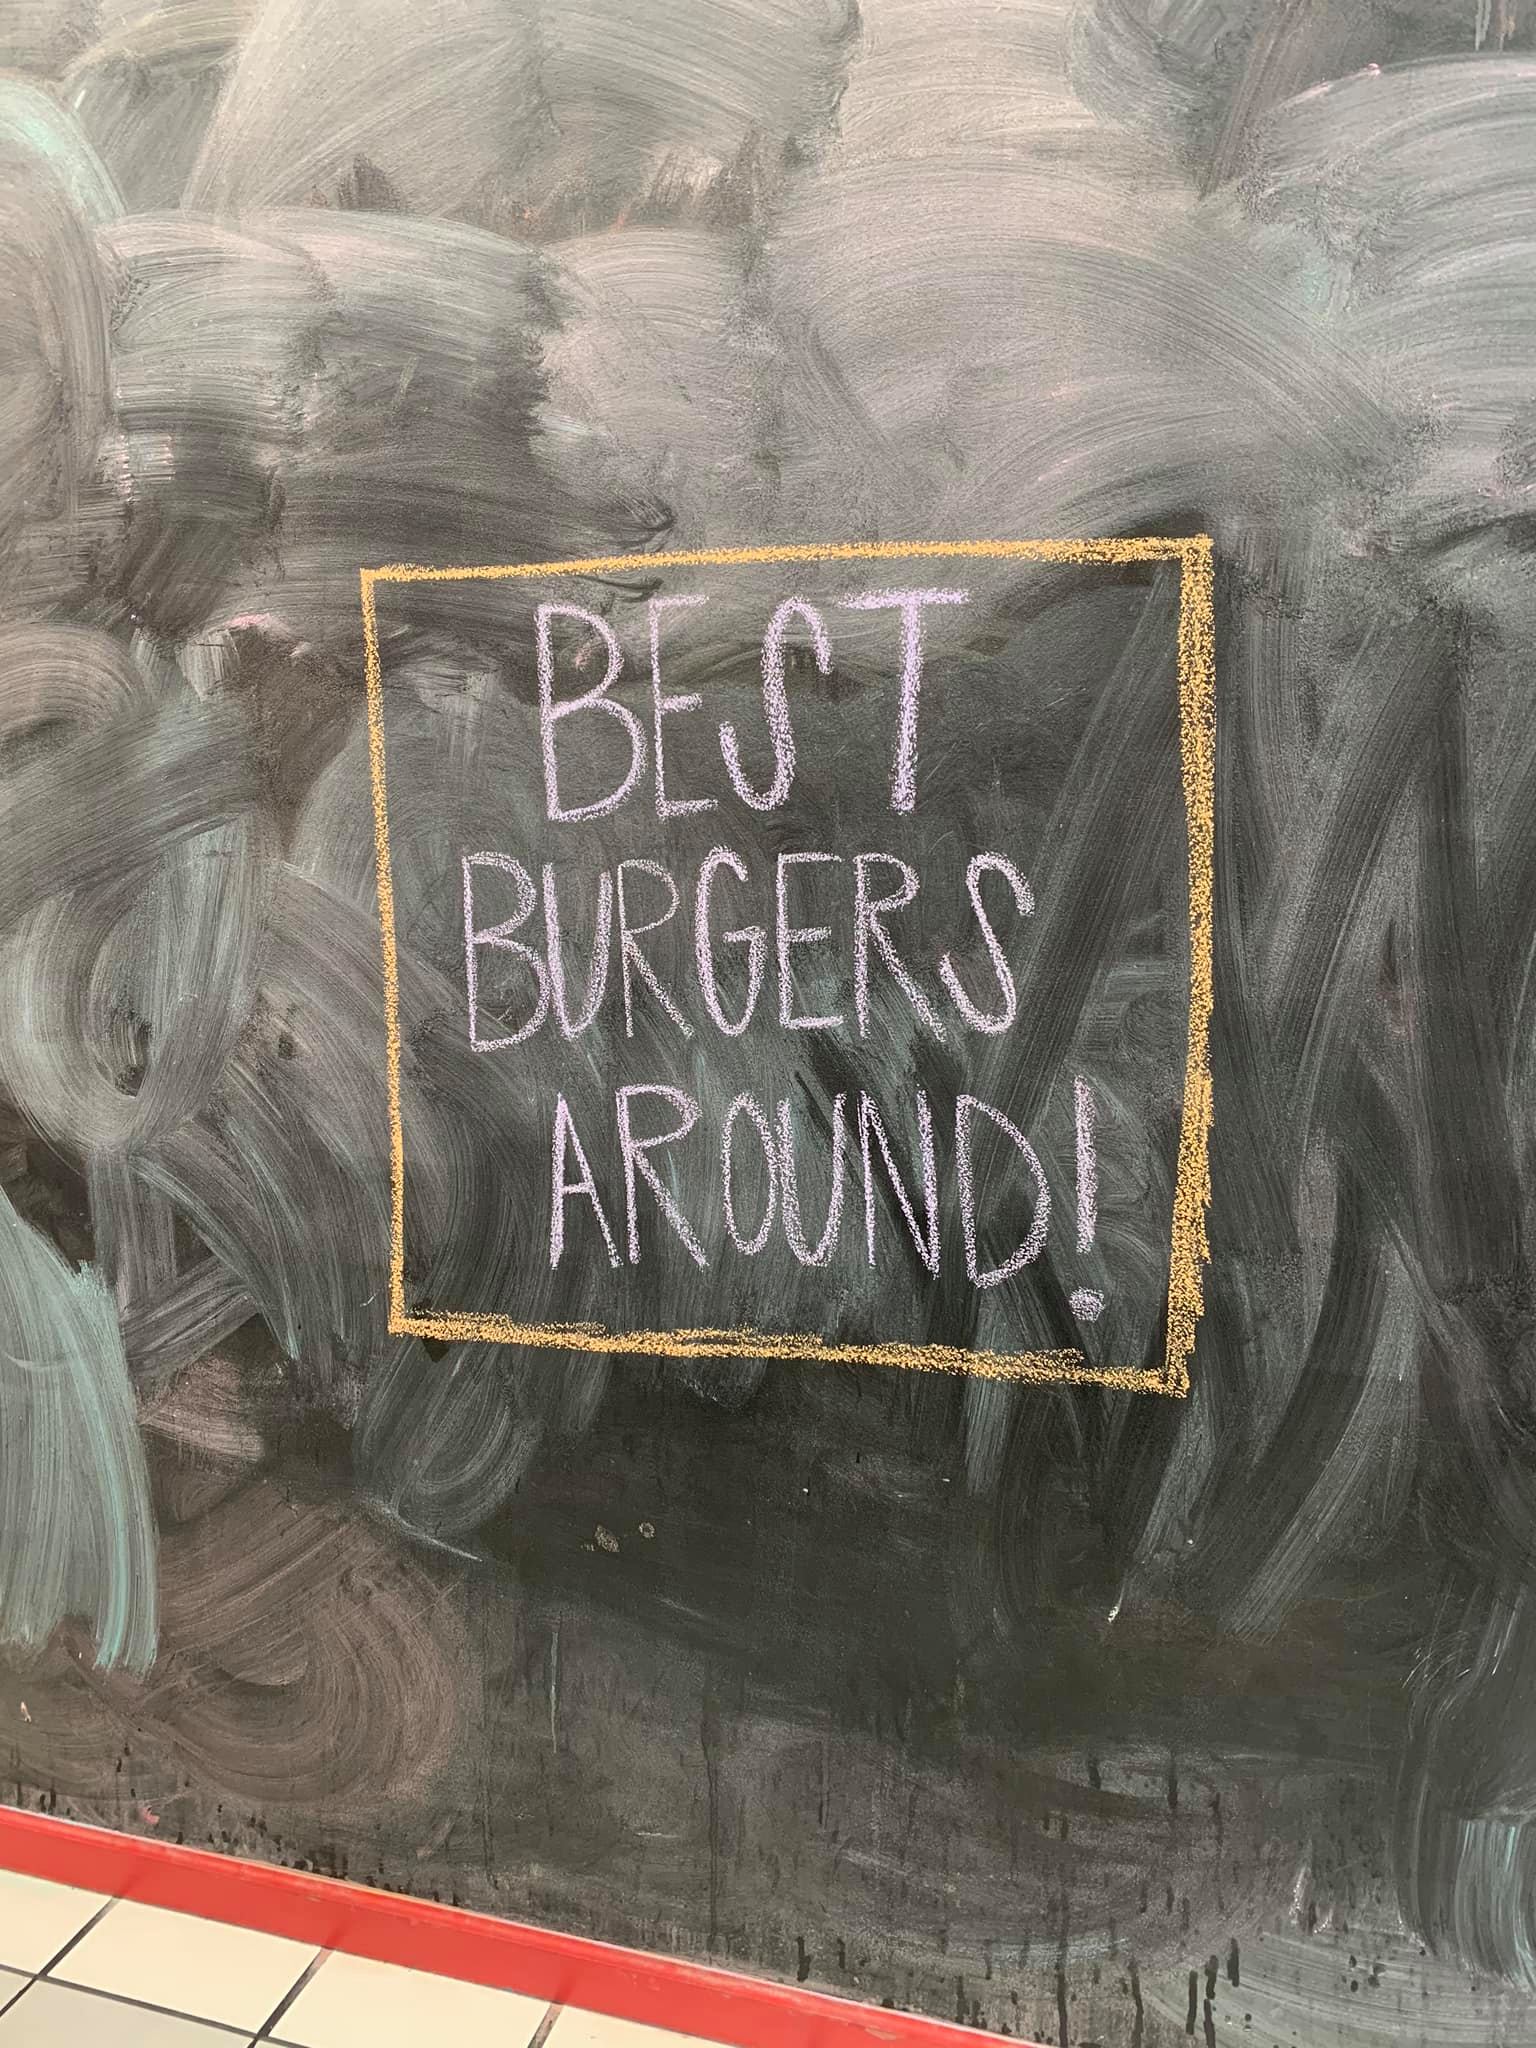 BEST
BURGERS
AROUND!